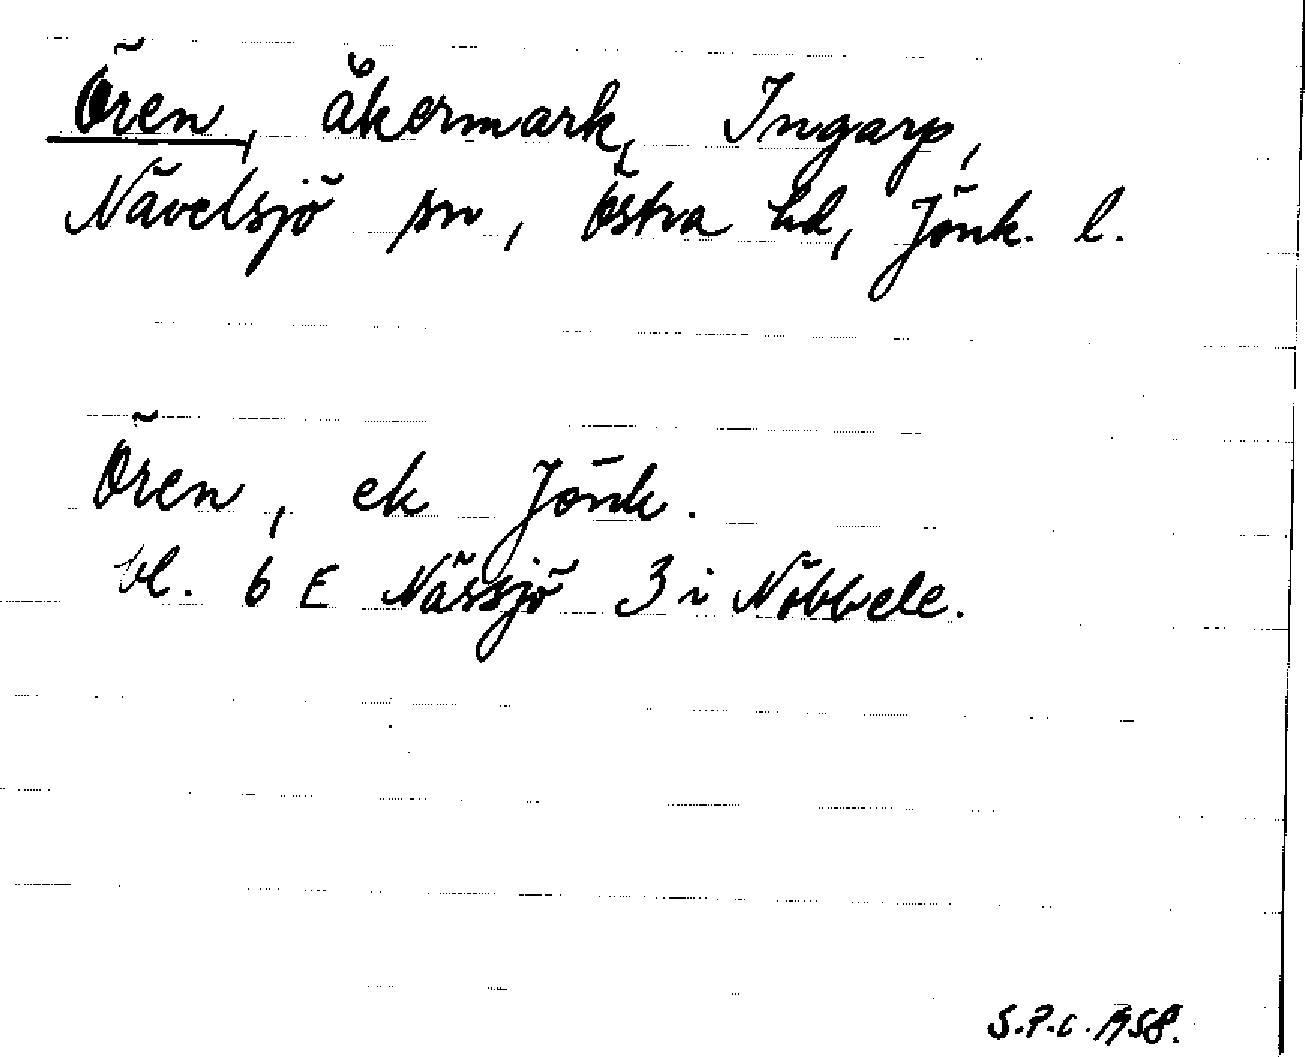 Ören, åkermark, Ingarp,
Nävelsjö sn, Östra hd, Jönk. l.
Ören, ek Jönk.
bl. 6 E Nässjö 3 i Nöbbele.
S.P.C. 1958.